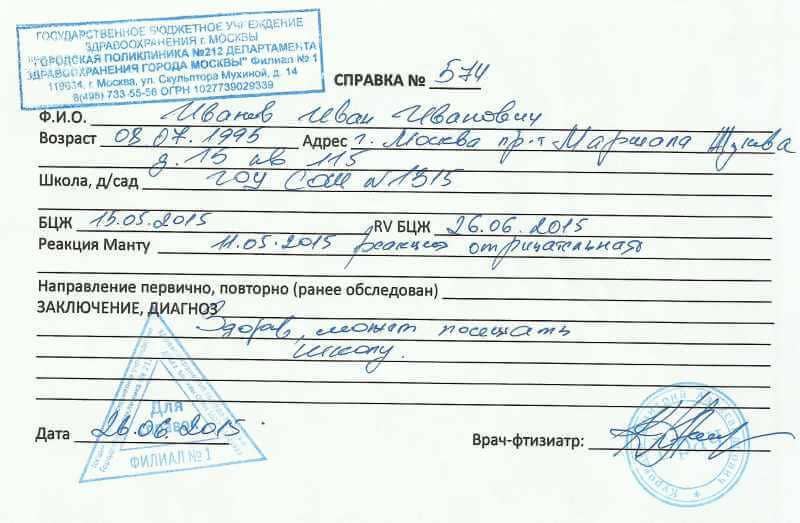 ГОСУДАРСТВЕННОЕ БЮДЖЕТНОЕ УЧРЕЖДЕНИЕ
ЗДРАВООХРАНЕНИЯ г. МОСКВЫ
"ГОРОДСКАЯ ПОЛИКЛИНИКА №212 ДЕПАРТАМЕНТА
ЗДРАВООХРАНЕНИЯ ГОРОДА МОСКВЫ" Филиал № 1
119634, г. Москва, ул. Скульптора Мухиной, д. 14
8(495) 733-55-56 ОГРН 1027739029339
СПРАВКА № 574
Ф.И.О. Иванов Иван Иванович
Возраст 08.07.1995 Адрес г. Москва пр-т Маршала Жукова
д. 15 кв 115
Школа, д/сад ГОУ СОШ №1315
БЦЖ 15.05.2015 RV БЦЖ 26.06.2015
Реакция Манту 11.05.2015 реакция отрицательная
Направление первично, повторно (ранее обследован)
ЗАКЛЮЧЕНИЕ, ДИАГНОЗ
Здоров, может посещать
школу.
Для
Дата 26.06.2015 Врач-фтизиатр:
ФИЛИАЛ № 1